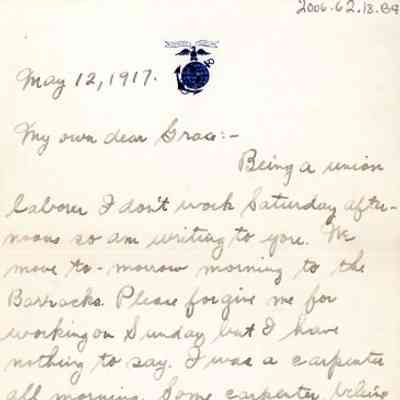 2006.62.13.B9
May 12, 1917.
My own dear Grace:-
Being a union
laborer I don't work Saturday after-
noons so am writing to you. We
move to-morrow morning to the
Barracks. Please forgive me for
working on Sunday but I have
nothing to say. I was a carpenter
all morning. Some carpenter, believe